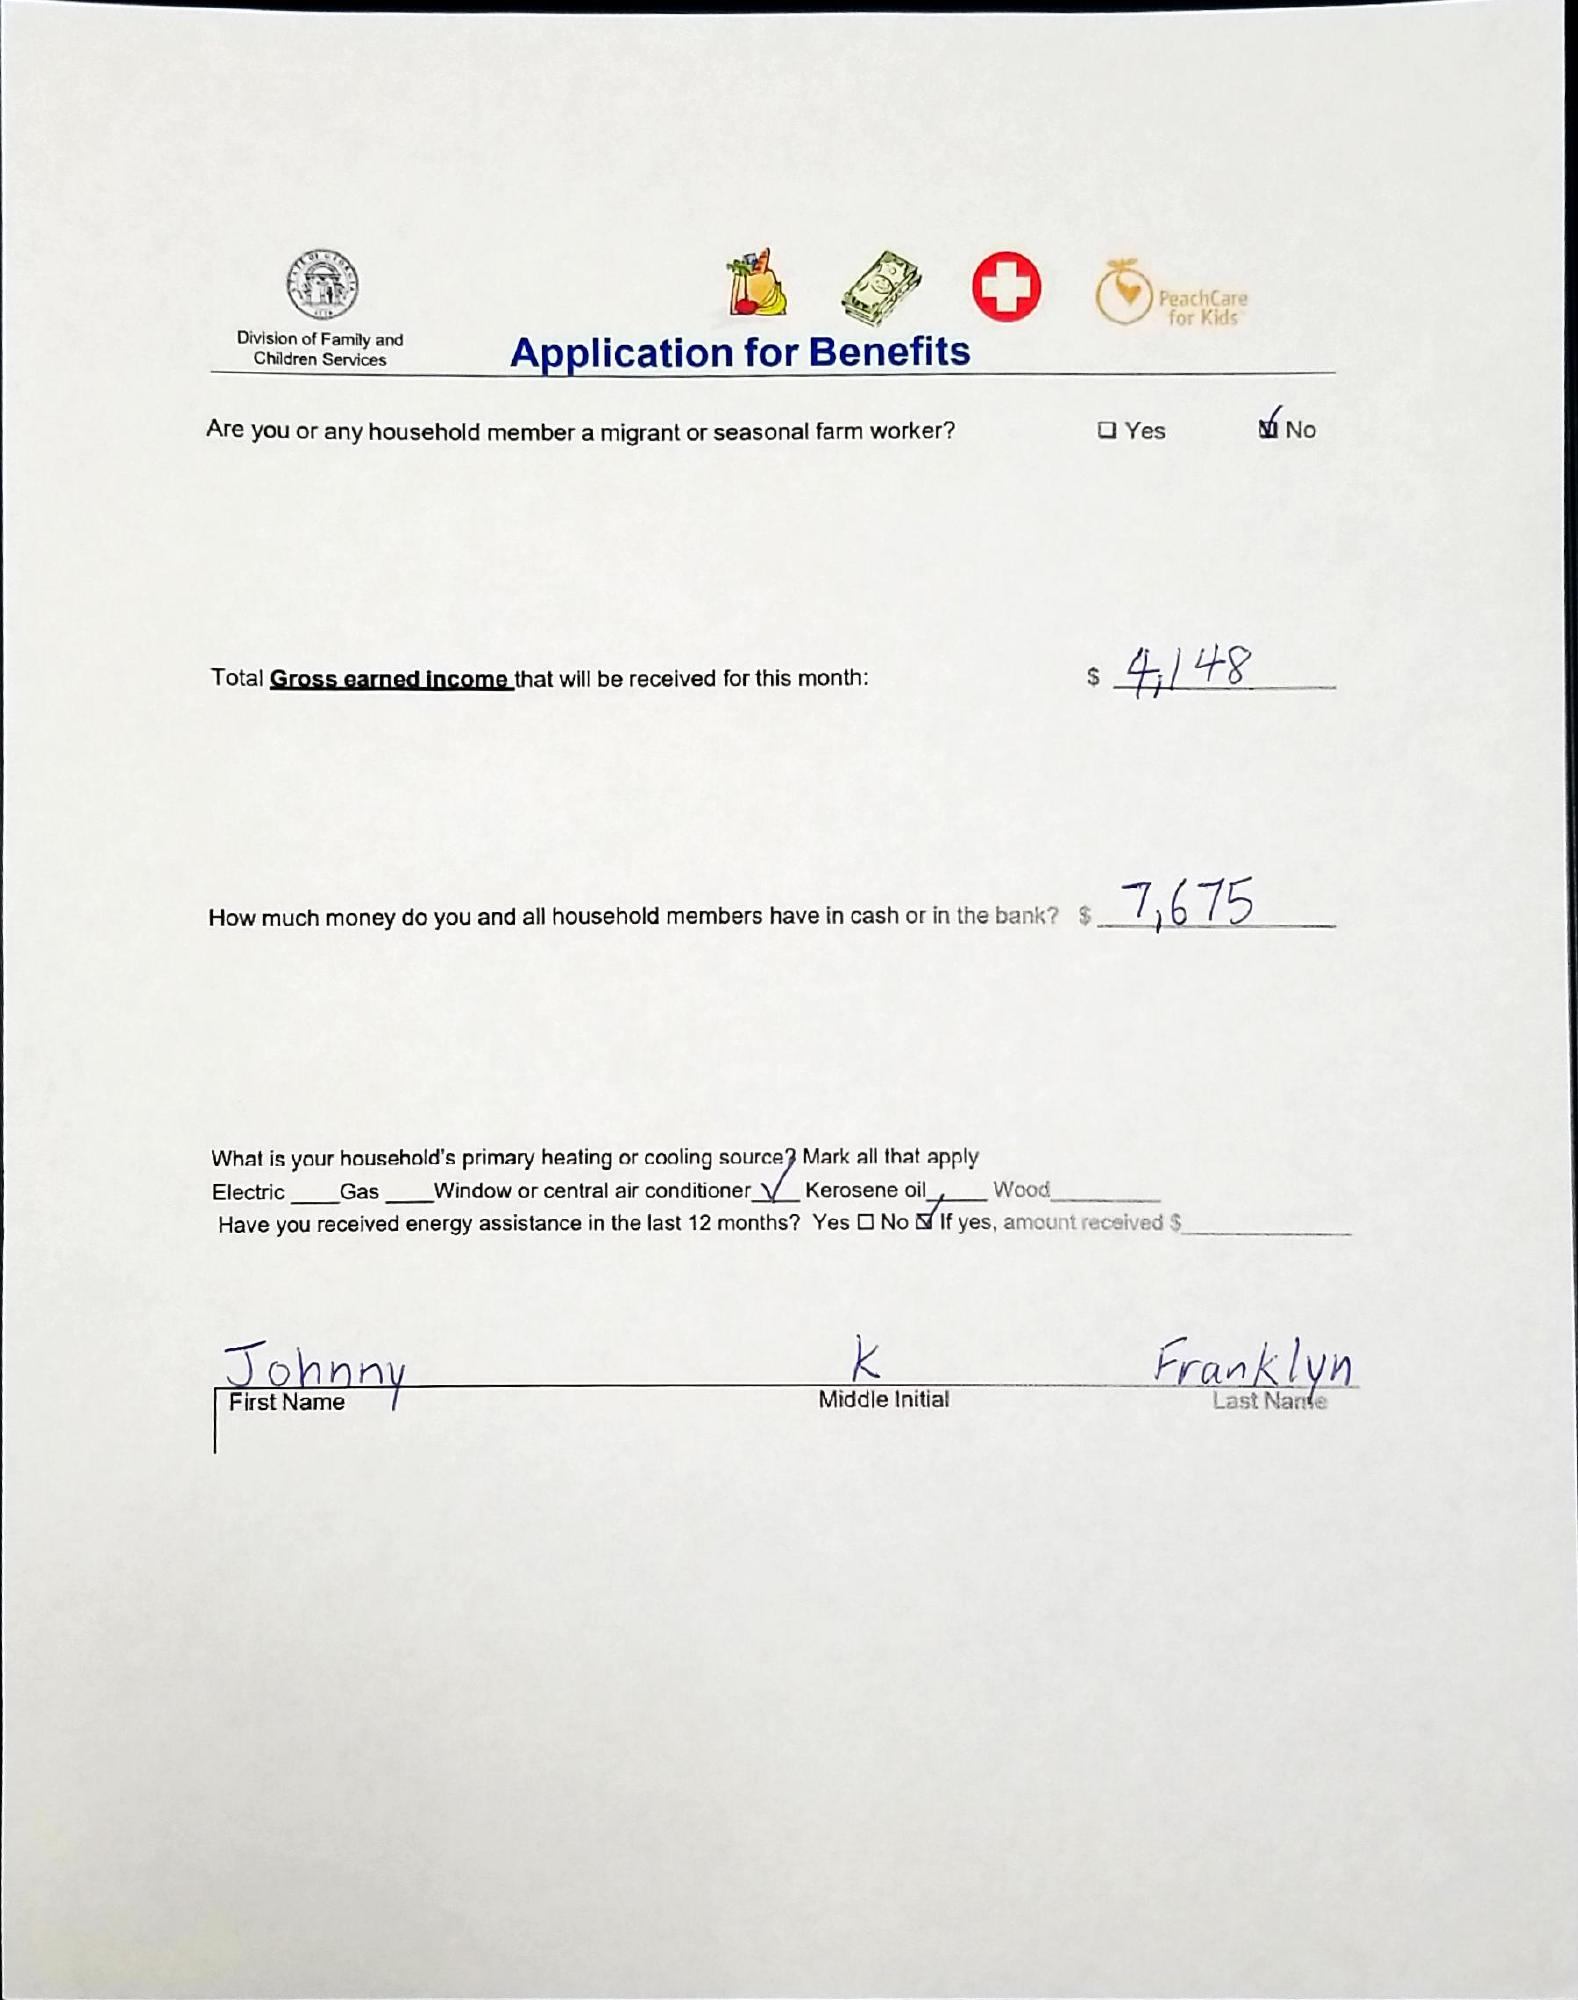 STATE OF GEORGIA
1776
PeachCare
for Kids
Division of Family and
Children Services
Application for Benefits
Are you or any household member a migrant or seasonal farm worker? ☐ Yes ☑ No
Total Gross earned income that will be received for this month: $ 4,148
How much money do you and all household members have in cash or in the bank? $ 7,675
What is your household's primary heating or cooling source? Mark all that apply
Electric ____Gas ____Window or central air conditioner ✓ Kerosene oil_____ Wood_________
Have you received energy assistance in the last 12 months? Yes ☐ No ☑ If yes, amount received $______________
Johnny K Franklyn
First Name Middle Initial Last Name